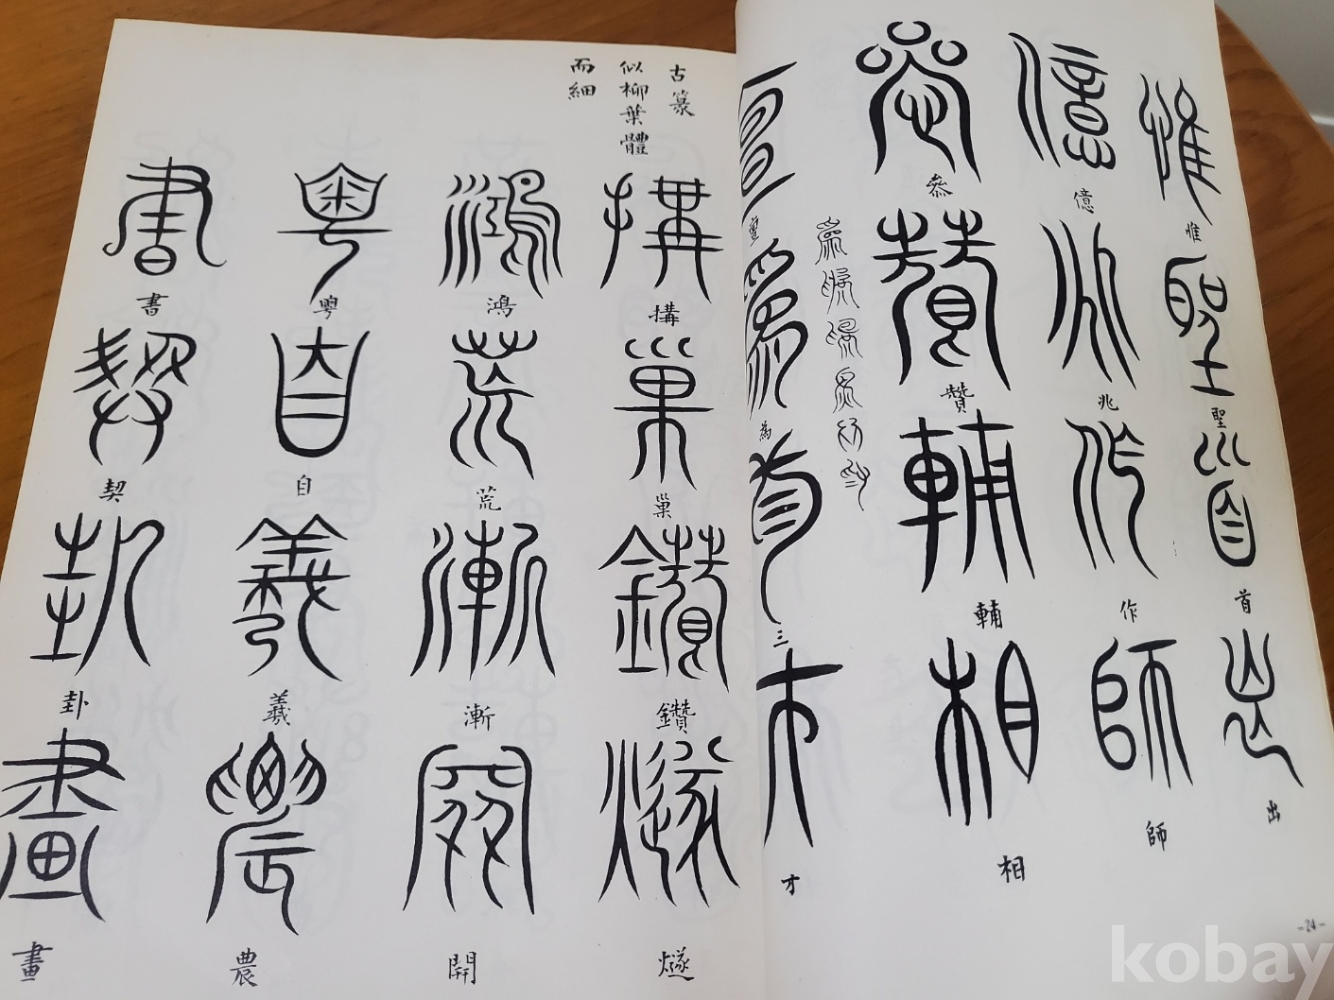 惟 聖 首 出
億 兆 作 師
叅 贊 輔 相
為 三 才
古篆
似柳葉體
而細
搆 巢 鑽 燧
鴻 荒 漸 開
粤 自 羲 農
書 契 卦 畫
-24-
kobay